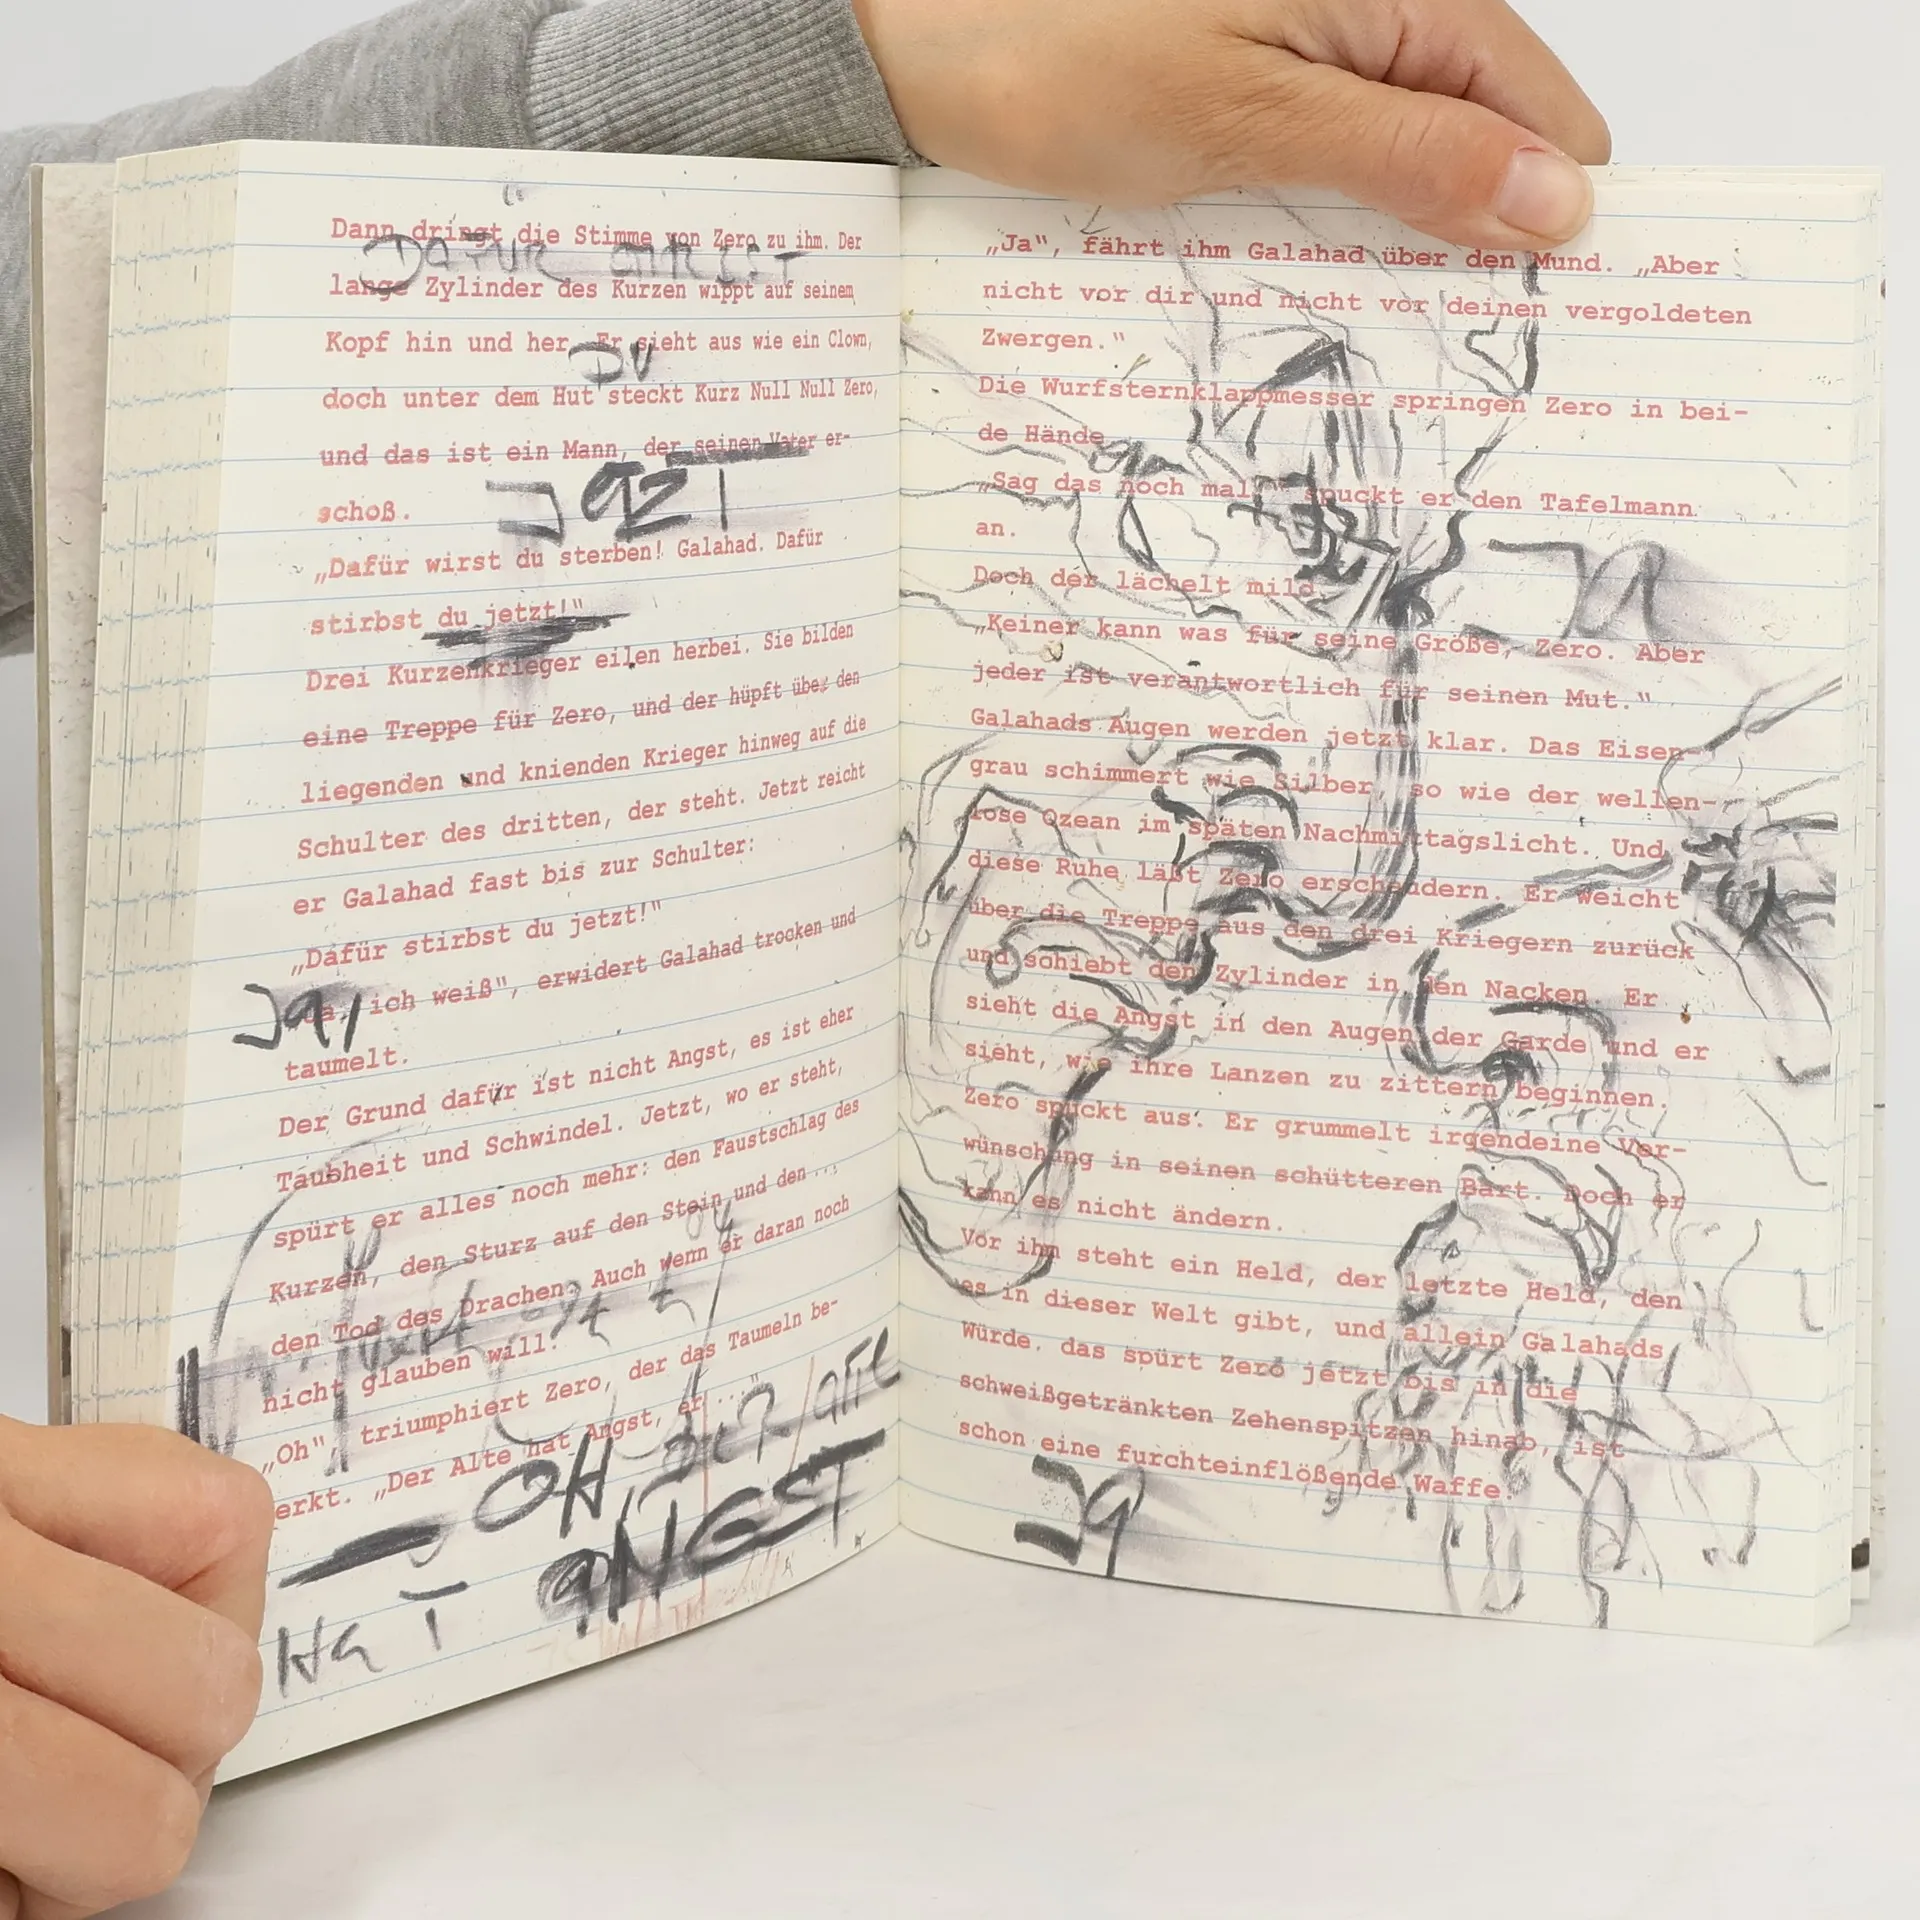 Dann dringt die Stimme von Zero zu ihm. Der
lange Zylinder des Kurzen wippt auf seinem
Kopf hin und her. Er sieht aus wie ein Clown,
doch unter dem Hut steckt Kurz Null Null Zero,
und das ist ein Mann, der seinen Vater er-
schoß.
„Dafür wirst du sterben! Galahad. Dafür
stirbst du jetzt!"
Drei Kurzenkrieger eilen herbei. Sie bilden
eine Treppe für Zero, und der hüpft über den
liegenden und knienden Krieger hinweg auf die
Schulter des dritten, der steht. Jetzt reicht
er Galahad fast bis zur Schulter:
„Dafür stirbst du jetzt!"
„Ja, ich weiß", erwidert Galahad trocken und
taumelt.
Der Grund dafür ist nicht Angst, es ist eher
Taubheit und Schwindel. Jetzt, wo er steht,
spürt er alles noch mehr: den Faustschlag des
Kurzen, den Sturz auf den Stein und den ...
den Tod des Drachen. Auch wenn er daran noch
nicht glauben will.
„Oh", triumphiert Zero, der das Taumeln be-
erkt. „Der Alte hat Angst, er ..."
DU
JA,
OH, DER alte
ANGST
Hat
„Ja", fährt ihm Galahad über den Mund. „Aber
nicht vor dir und nicht vor deinen vergoldeten
Zwergen."
Die Wurfsternklappmesser springen Zero in bei-
de Hände.
„Sag das noch mal!" spuckt er den Tafelmann
an.
Doch der lächelt mild.
„Keiner kann was für seine Größe, Zero. Aber
jeder ist verantwortlich für seinen Mut."
Galahads Augen werden jetzt klar. Das Eisen-
grau schimmert wie Silber, so wie der wellen-
lose Ozean im späten Nachmittagslicht. Und
diese Ruhe läßt Zero erschaudern. Er weicht
über die Treppe aus den drei Kriegern zurück
und schiebt den Zylinder in den Nacken. Er
sieht die Angst in den Augen der Garde und er
sieht, wie ihre Lanzen zu zittern beginnen.
Zero spuckt aus. Er grummelt irgendeine Ver-
wünschung in seinen schütteren Bart. Doch er
kann es nicht ändern.
Vor ihm steht ein Held, der letzte Held, den
es in dieser Welt gibt, und allein Galahads
Würde, das spürt Zero jetzt bis in die
schweißgetränkten Zehenspitzen hinab, ist
schon eine furchteinflößende Waffe.
JA
JA